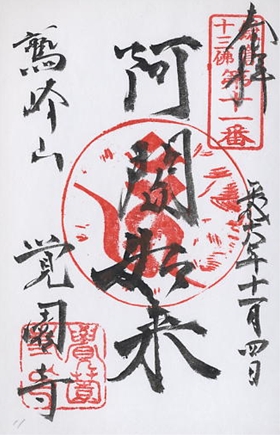 奉拝
十三佛
第十一番
十一月四日
阿閦如来
鷲峰山 覚園寺